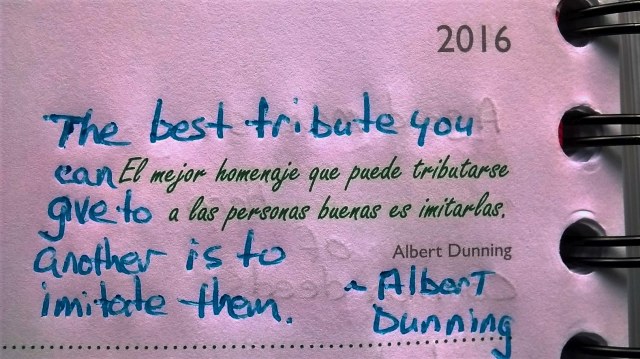 2016
The best tribute you
can El mejor homenaje que puede tributarse
give to a las personas buenas es imitarlas.
Albert Dunning
another is to
imitate them. ~ Albert
Dunning